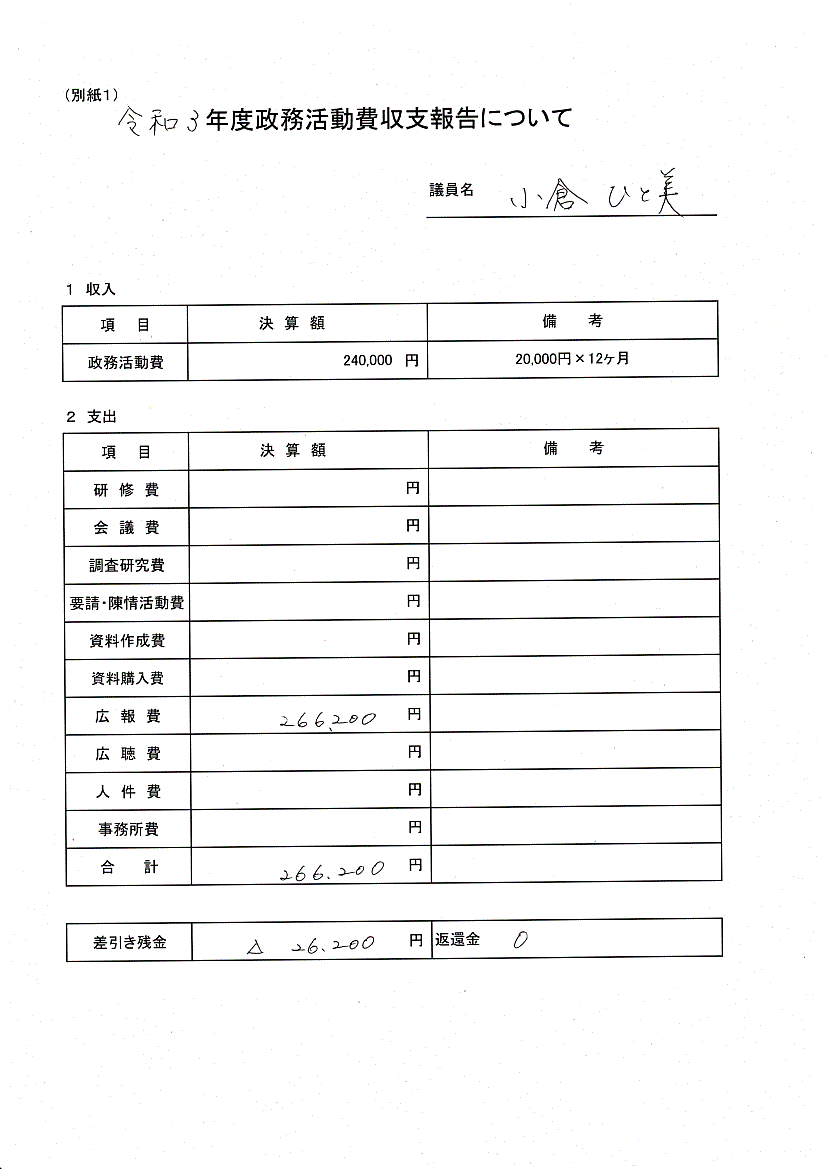 (別紙1)
令和3年度政務活動費収支報告について
議員名 小倉 ひと美
1 収入
項 目 決 算 額 備 考
政務活動費 240,000 円 20,000円×12ヶ月
2 支出
項 目 決 算 額 備 考
研 修 費 円
会 議 費 円
調査研究費 円
要請・陳情活動費 円
資料作成費 円
資料購入費 円
広 報 費 266,200 円
広 聴 費 円
人 件 費 円
事務所費 円
合 計 266.200 円
差引き残金 △ 26.200 円 返還金 0